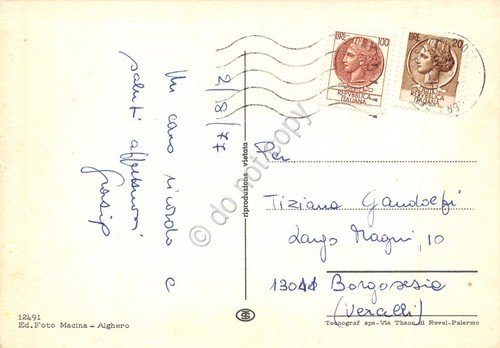 2/8/77
Un caro ricordo e
saluti affettuosi
LIRE 100
REPUBBLICA
ITALIANA
LIRE 20
REPUBBLICA
ITALIANA
Per
Tiziana Gandolfi
Largo Magni, 10
13011 Borgosesia
(Vercelli)
riproduzione vietata
12491
Ed. Foto Macina - Alghero
Tecnograf spa - Via Thaon di Revel - Palermo
© do not copy